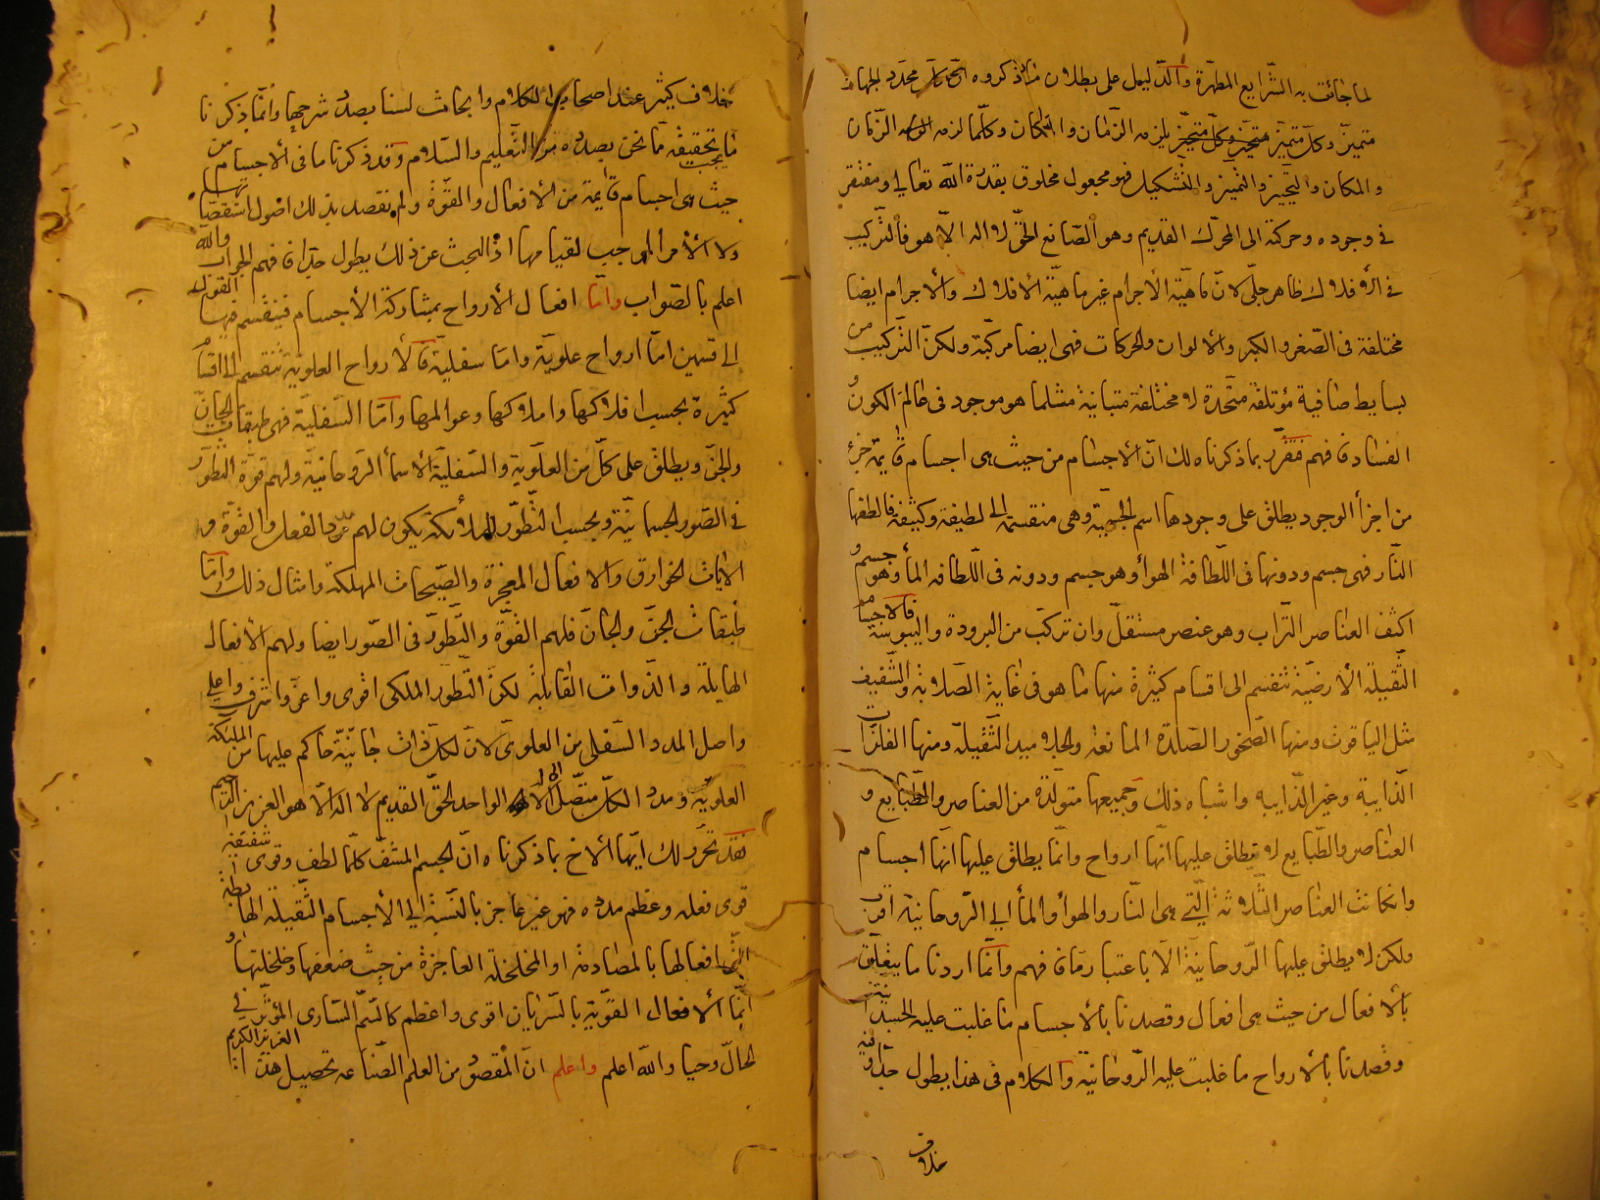 لما جائت به الشرايع المطهرة والدليل على بطلان ما ذكروه ان كل محدد الجهات
متميز وكل متميز متحيز وكل متحيز يلزمه الزمان والمكان وكلما لزمه الزمان
والمكان والتحيز والتميز والتشكيل فهو مجعول مخلوق بقدرة الله تعالى ومفتقر
فى وجوده وحركته الى المحرك القديم وهو الصانع الحق لا اله الا هو فالتركيب
فى الافلاك ظاهر جلى لان ماهية الاجرام غير ماهية الافلاك والاجرام ايضا
مختلفة فى الصغر والكبر والالوان والحركات فهى ايضا مركبة ولكن التركيب من
بسايط صافية مؤتلفة متحدة لا مختلفة متباينة مثلما هو موجود فى عالم الكون و
الفساد فافهم فتقرر بما ذكرناه لك ان الاجسام من حيث هى اجسام قايمة جزء
من اجزأ الوجود يطلق على وجودها اسم الجسمية وهى منقسمة الى لطيفة وكثيفة فالطفها
النار فهى جسم ودونها فى اللطافة الهوأ وهو جسم ودونه فى اللطافه المأ وهو جسم و
اكثف العناصر التراب وهو عنصر مستقل وان تركب من البرودة واليبوسة فالاجسام
الثقيلة الارضية تنقسم الى اقسام كثيرة منها ما هو فى غاية الصلابة والشفيف
مثل الياقوت ومنها الصخور الصلدة المانعة والجلاميد الثقيلة ومنها الفلزات
الذايبة وغير الذايبه واشباه ذلك وجميعها متولدة من العناصر والطبايع و
العناصر والطبايع لا يطلق عليها انها ارواح وانما يطلق عليها انها اجسام
وان كانت العناصر الثلاثة التى هى النار والهوأ والمأ الى الروحانية اقرب
ولكن لا يطلق عليها الروحانية الا باعتبار مافافهم وانما اردنا ما يتعلق
بالافعال من حيث هى افعال وقصدنا بالاجسام ما غلبت عليه الجسدانية
وقصدنا بالارواح ما غلبت عليه الروحانية والكلام فى هذا يطول جدا وفيه
خلاف
خلاف كثير عند اصحاب الكلام وابحاث لسنا بصدد شرحها وانما ذكرنا
ما يجب تحقيقه مما نحن بصدده من التعليم والسلام وقد ذكرنا ما فى الاجسام من
حيث هى اجسام قايمة من الافعال والقوة ولم نقصد بذلك اصول استقصاتها
ولا الامر الموجب لقيامها اذ البحث عن ذلك يطول جدا فافهم الجواب والله
اعلم بالصواب واما افعال الارواح بمشاركة الاجسام فينقسم فيها القول
الى قسمين اما ارواح علوية واما سفلية فالارواح العلوية تنقسم الى اقسام
كثيرة بحسب افلاكها واملاكها وعوالمها واما السفلية فهى طبقات الجان
والجن ويطلق على كل من العلوية والسفلية الاسمأ الروحانية ولهم قوة التطور
فى الصور الجسمانية وبحسب التطور للملائكة يكون لهم مدد الفعل والقوة و
الايات الخوارق والافعال المعجزة والصيحات المهلكة وامثال ذلك واما
طبقات الجن والجان فلهم القوة والتطور فى الصور ايضا ولهم الافعال
الهايلة والذوات القابلة لكن التطور الملكى اقوى واعز واشرف واعلى
واصل المدد السفلى من العلوى لان لكل ذات جانية حاكم عليها من الملئكة
العلوية ومدد الكل متصل الى الاله الواحد الحق القديم لا اله الا هو العزيز الرحيم
فقد تحرر لك ايها الاخ بما ذكرناه ان الجسم المشف كلما لطف وقوى شفيفه
قوى فعله وعظم مدده فهو غير عاجز بالنسبة الى الاجسام الثقيلة الهابطة
التى افعالها بالمصادمة او المخلخلة العاجزة من حيث ضعفها وخلخلتها و
انما الافعال القوية بالسريان اقوى واعظم كالسم السارى المؤثر فى
الحال وحيا والله اعلم واعلم ان المقصود من العلم الصناعه تحصيل هذا العزيز الكريم